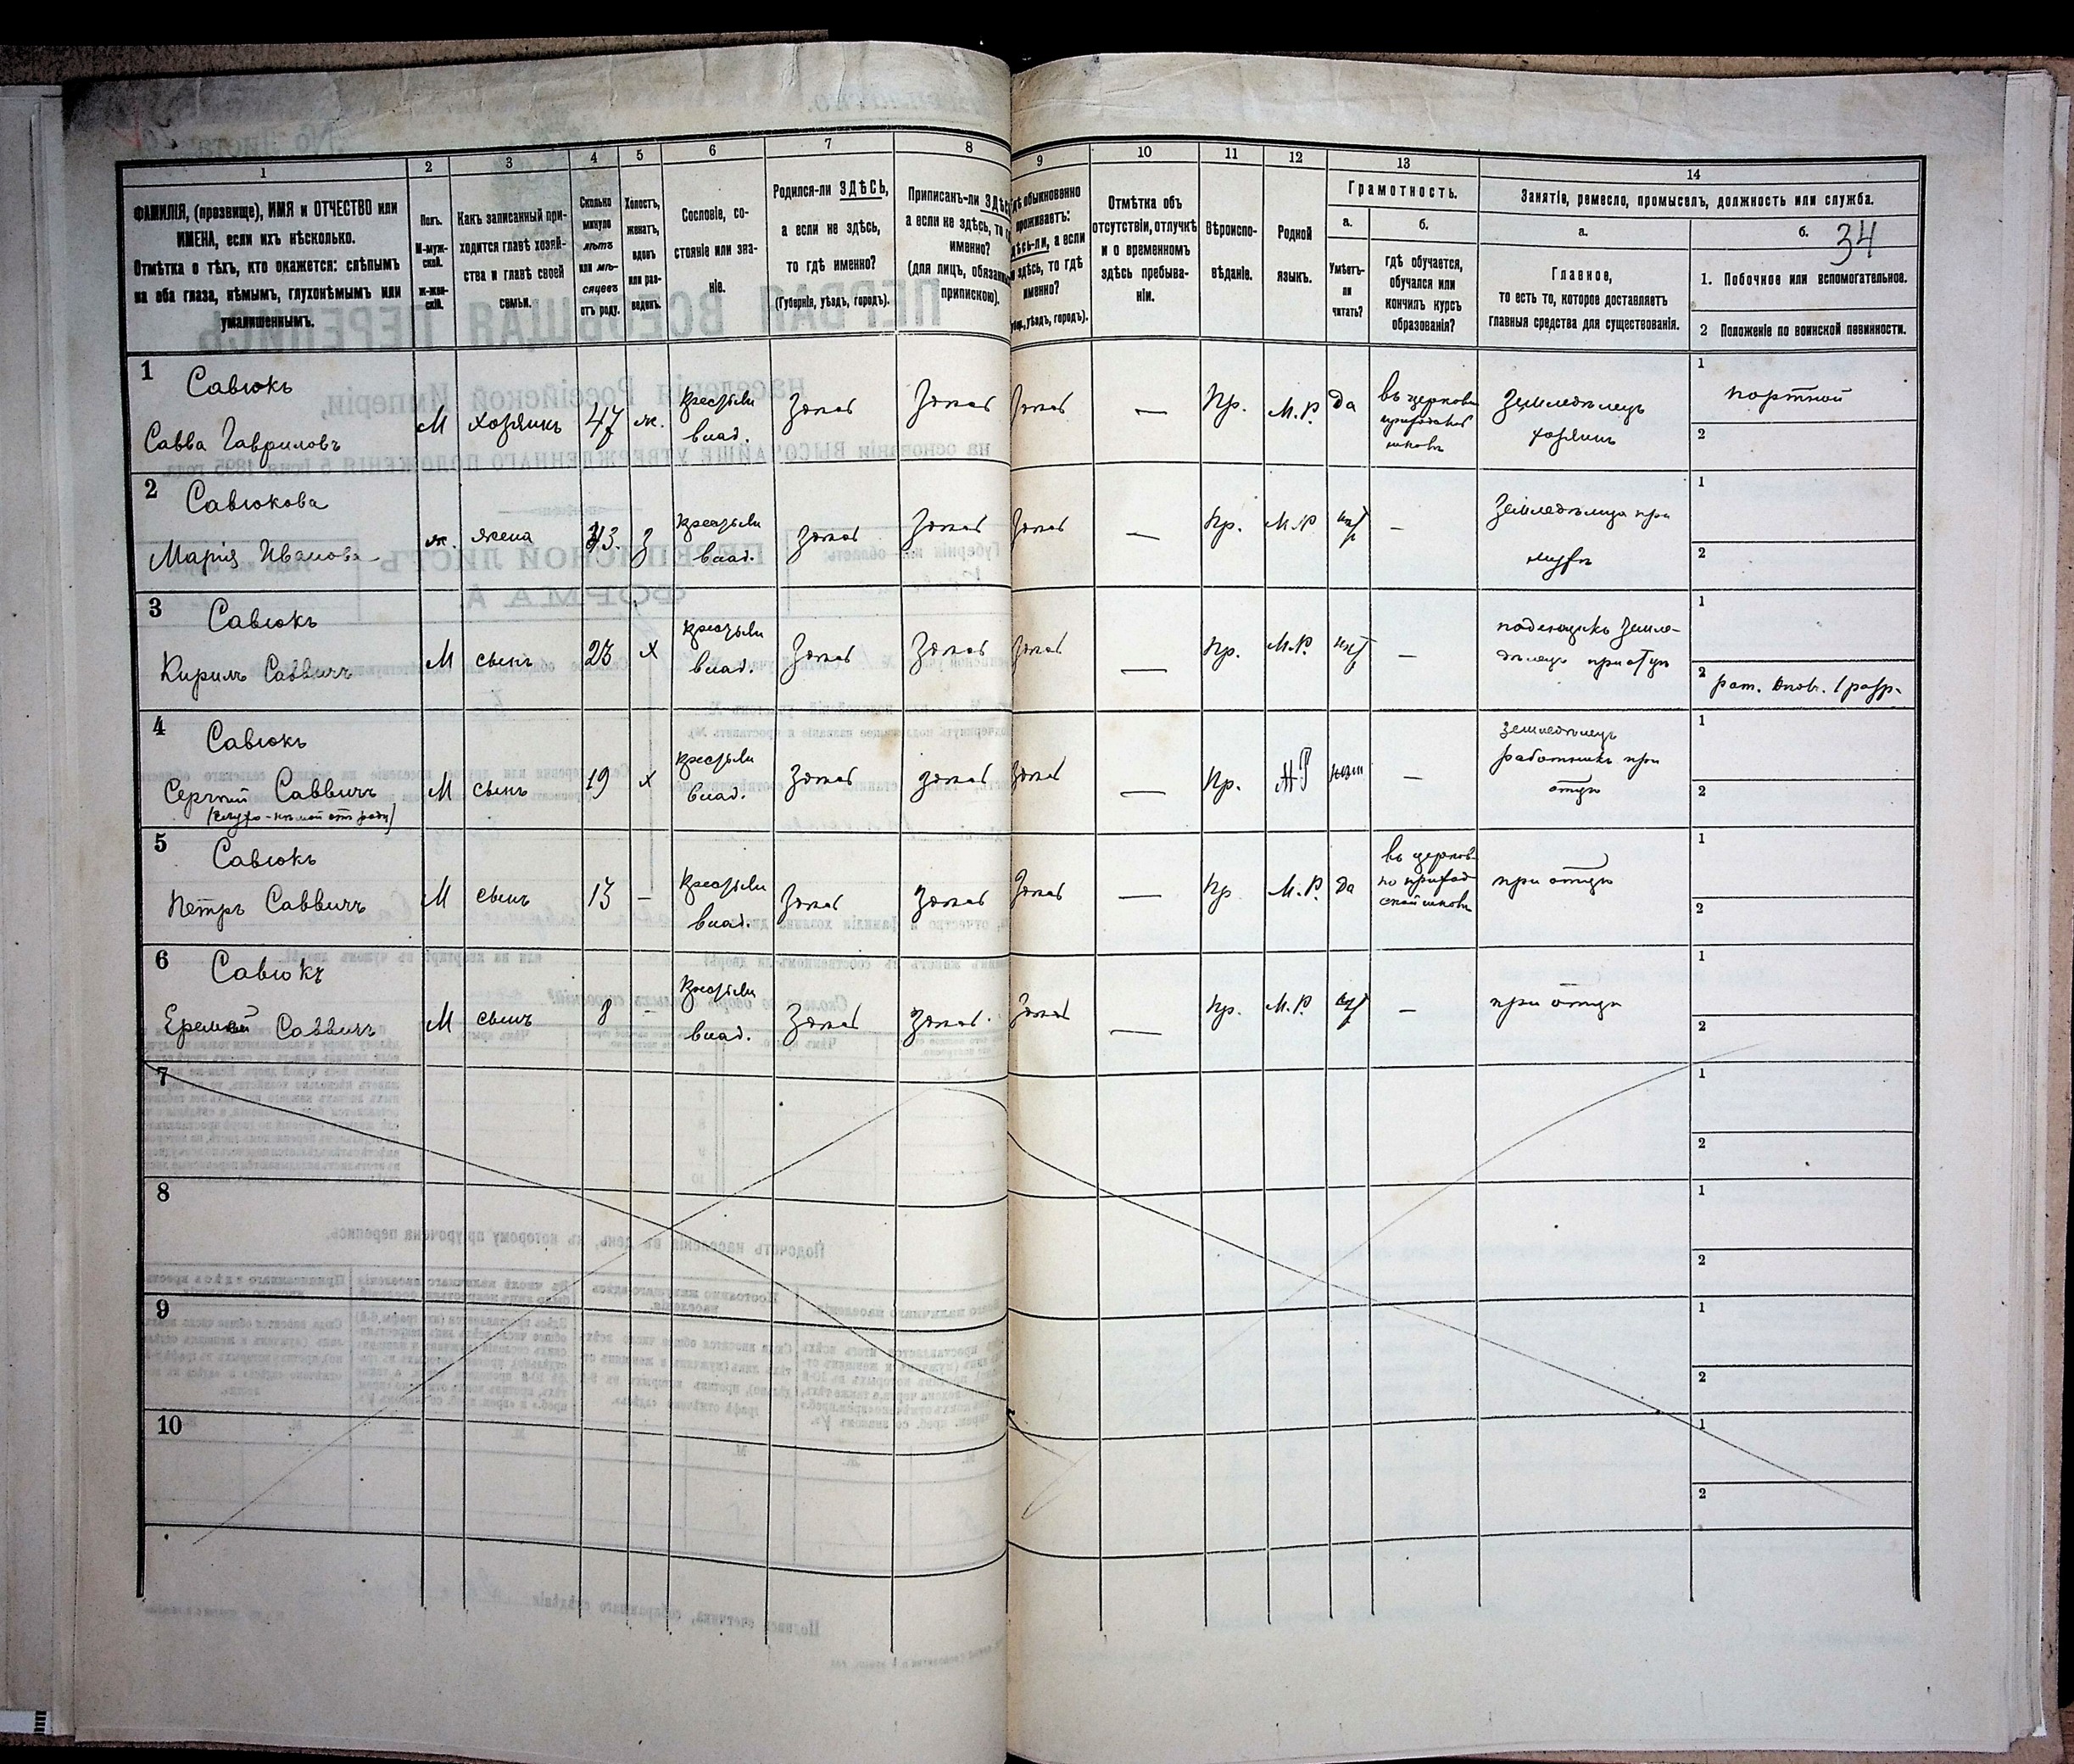 34
1
2
3
4
5
6
7
8
9
10
11
12
13
14
ФАМИЛІЯ, (прозвище), ИМЯ и ОТЧЕСТВО или
ИМЕНА, если ихъ нѣсколько.
Отмѣтка о тѣхъ, кто окажется: слѣпымъ
на оба глаза, нѣмымъ, глухонѣмымъ или
умалишеннымъ.
Полъ.
М-муж-
ской.
Ж-жен-
скій.
Какъ записанный при-
ходится главѣ хозяй-
ства и главѣ своей
семьи.
Сколько
минуло
лѣтъ
или мѣ-
сяцевъ
отъ роду.
Холостъ,
женатъ,
вдовъ
или раз-
веденъ.
Сословіе, со-
стояніе или зва-
ніе.
Родился-ли ЗДѢСЬ,
а если не здѣсь,
то гдѣ именно?
(Губернія, уѣздъ, городъ).
Приписанъ-ли
а если не здѣсь, то
именно?
(для лицъ,
припискою).
обыкновенно
проживаетъ:
а если
здѣсь, то гдѣ
именно?
уѣздъ, городъ).
Отмѣтка объ
отсутствіи, отлучкѣ
и о временномъ
здѣсь пребыва-
ніи.
Вѣроиспо-
вѣданіе.
Родной
языкъ.
Грамотность.
а.
Умѣетъ-
ли
читать?
б.
гдѣ обучается,
обучался или
кончилъ курсъ
образованія?
Занятіе, ремесло, промыселъ, должность или служба.
а.
Главное,
то есть то, которое доставляетъ
главныя средства для существованія.
б.
1. Побочное или вспомогательное.
2 Положеніе по воинской повинности.
1
Савюкъ
Савва Гавриловъ
М
хозяинъ
47
ж.
крестьян
влад.
Здѣсь
Здѣсь
Здѣсь
—
Пр.
М.Р.
да
въ церковно
Земледѣлецъ
хозяинъ
1
портной
2
2
Савюкова
Марія Иванова
ж.
жена
43.
з
крестьян
влад.
Здѣсь
Здѣсь
Здѣсь
—
Пр.
М.Р.
нѣт
—
Земледѣлица при
мужѣ
1
2
3
Савюкъ
Кирилъ Саввичъ
М
сынъ
х
крестьян
влад.
Здѣсь
Здѣсь
Здѣсь
—
Пр.
М.Р.
нѣт
—
земле-
дѣлецъ при отцѣ
1
2
рат. 1 разр.
4
Савюкъ
Сергѣй Саввичъ
(глухо-нѣмой отъ роду)
М
сынъ
19
х
крестьян
влад.
Здѣсь
здѣсь
Здѣсь
—
Пр.
М.Р
нѣт
—
земледѣлецъ
работникъ при
отцѣ
1
2
5
Савюкъ
Петръ Саввичъ
М
сынъ
13
—
крестьян
влад.
Здѣсь
Здѣсь
Здѣсь
—
Пр
М.Р.
да
въ церков-
но приход
ской школѣ
при отцѣ
1
2
6
Савюкъ
Еремѣй Саввичъ
М
сынъ
8
-
крестьян
влад.
Здѣсь
Здѣсь.
Здѣсь
—
Пр.
М.Р.
нѣт
—
при отцѣ
1
2
7
1
2
8
1
2
9
1
2
10
1
2